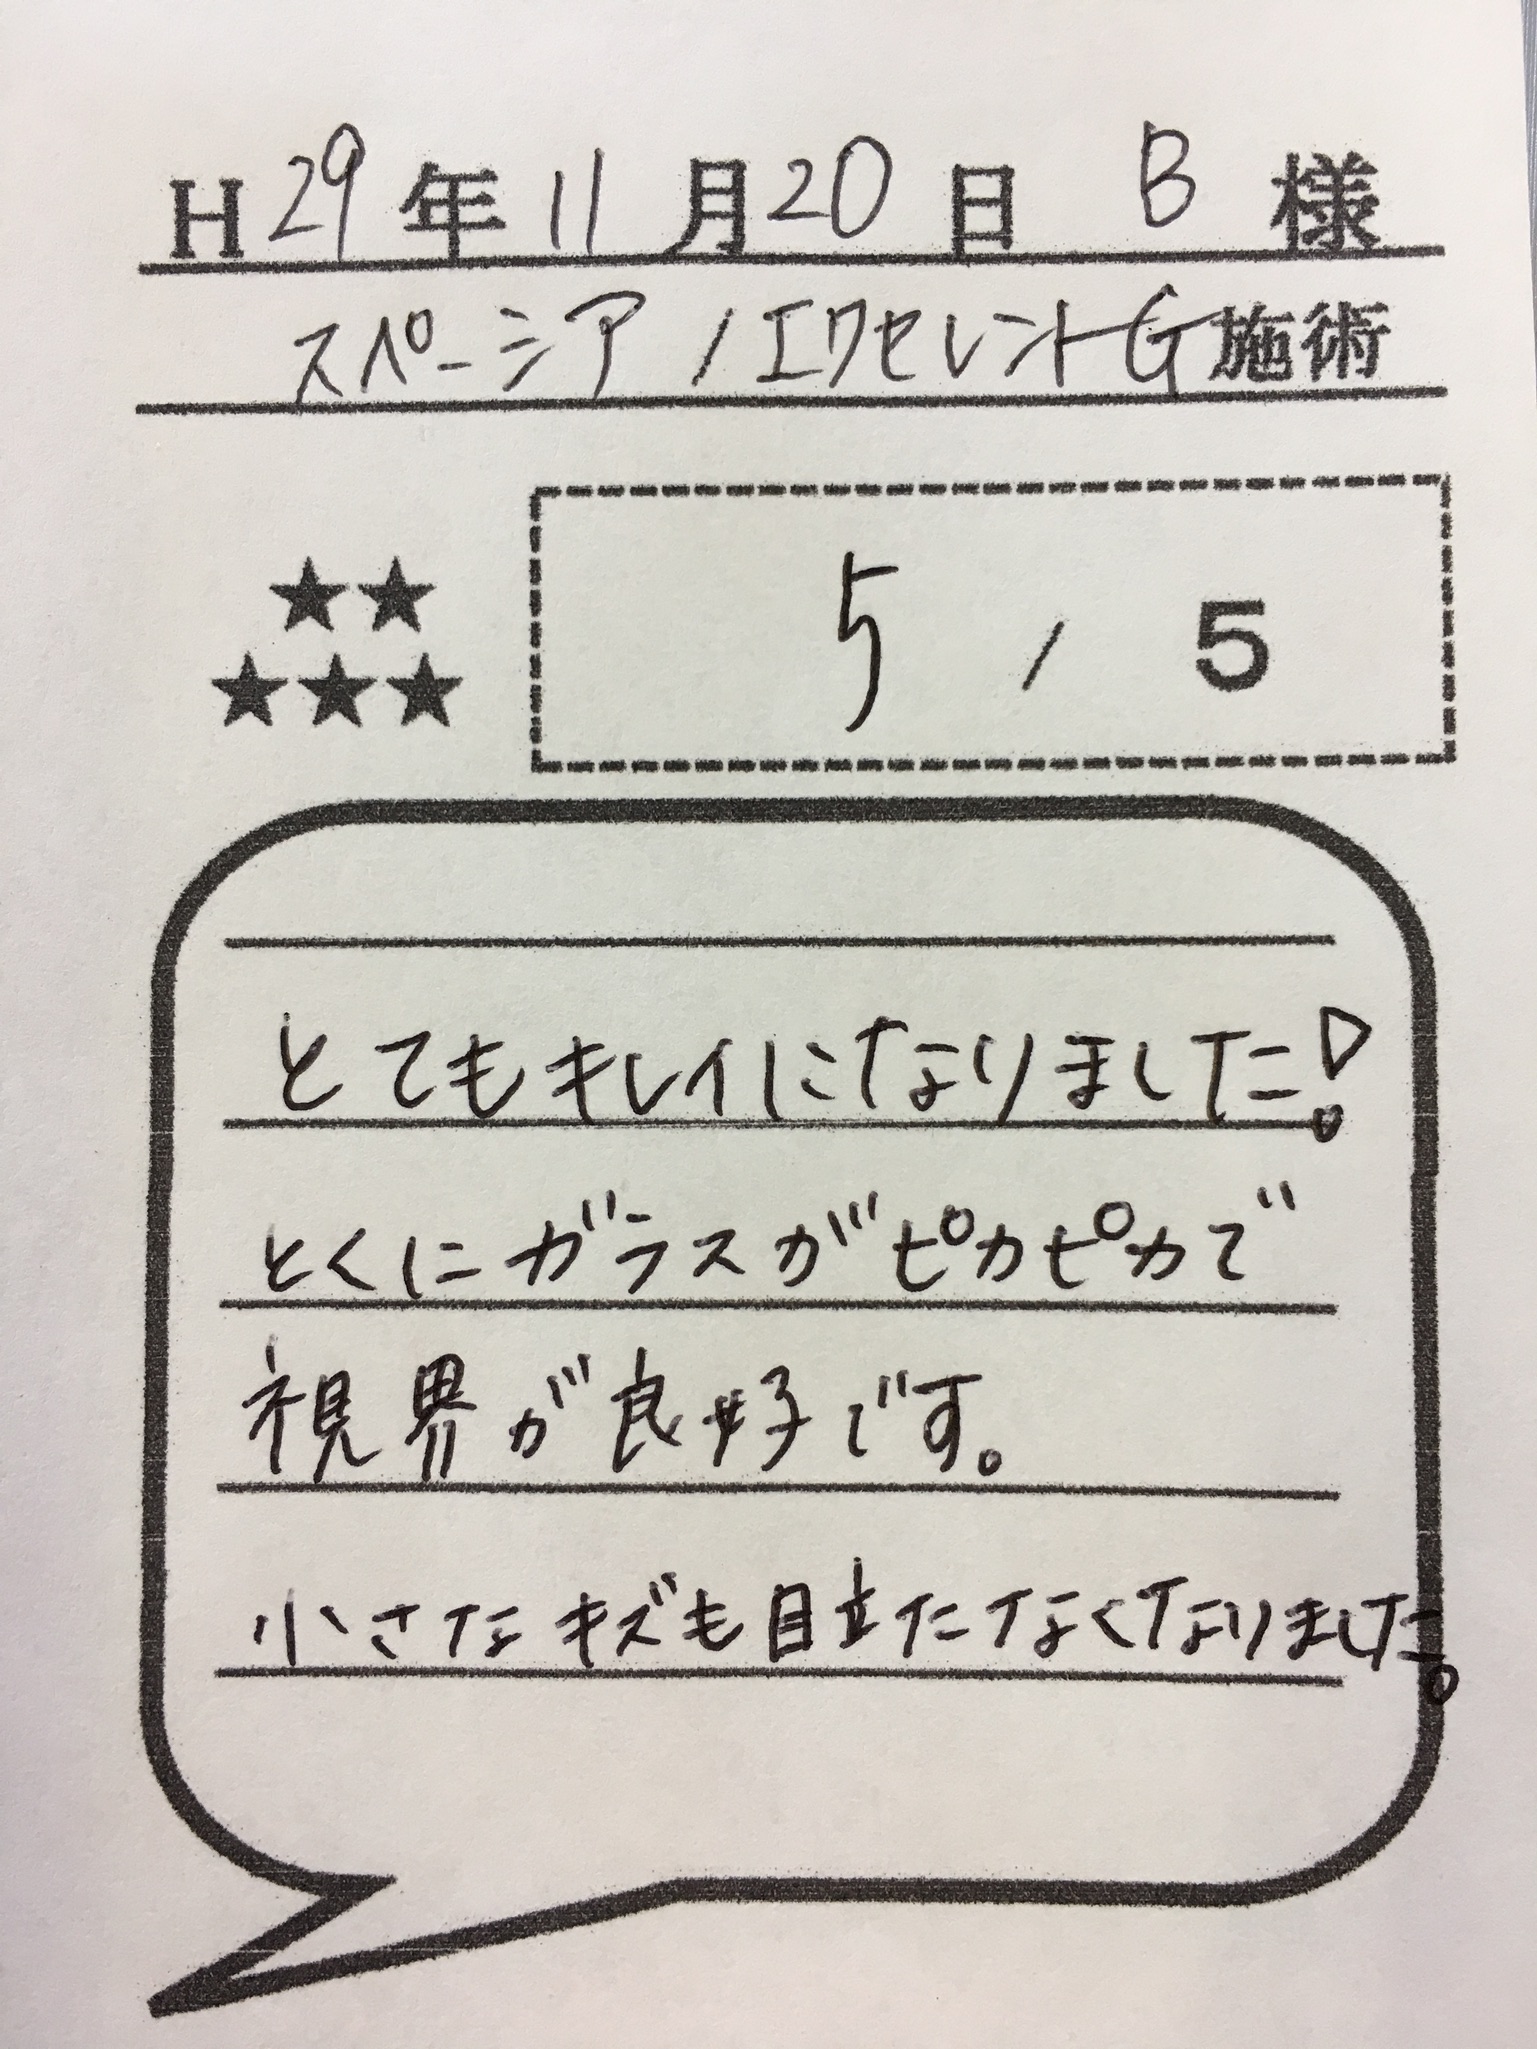 H29年11月20日 B 様
スペーシア/エクセレントG施術
★★
★★★
5 / 5
とてもキレイになりました!
とくにガラスがピカピカで
視界が良好です。
小さなキズも目立たなくなりました。